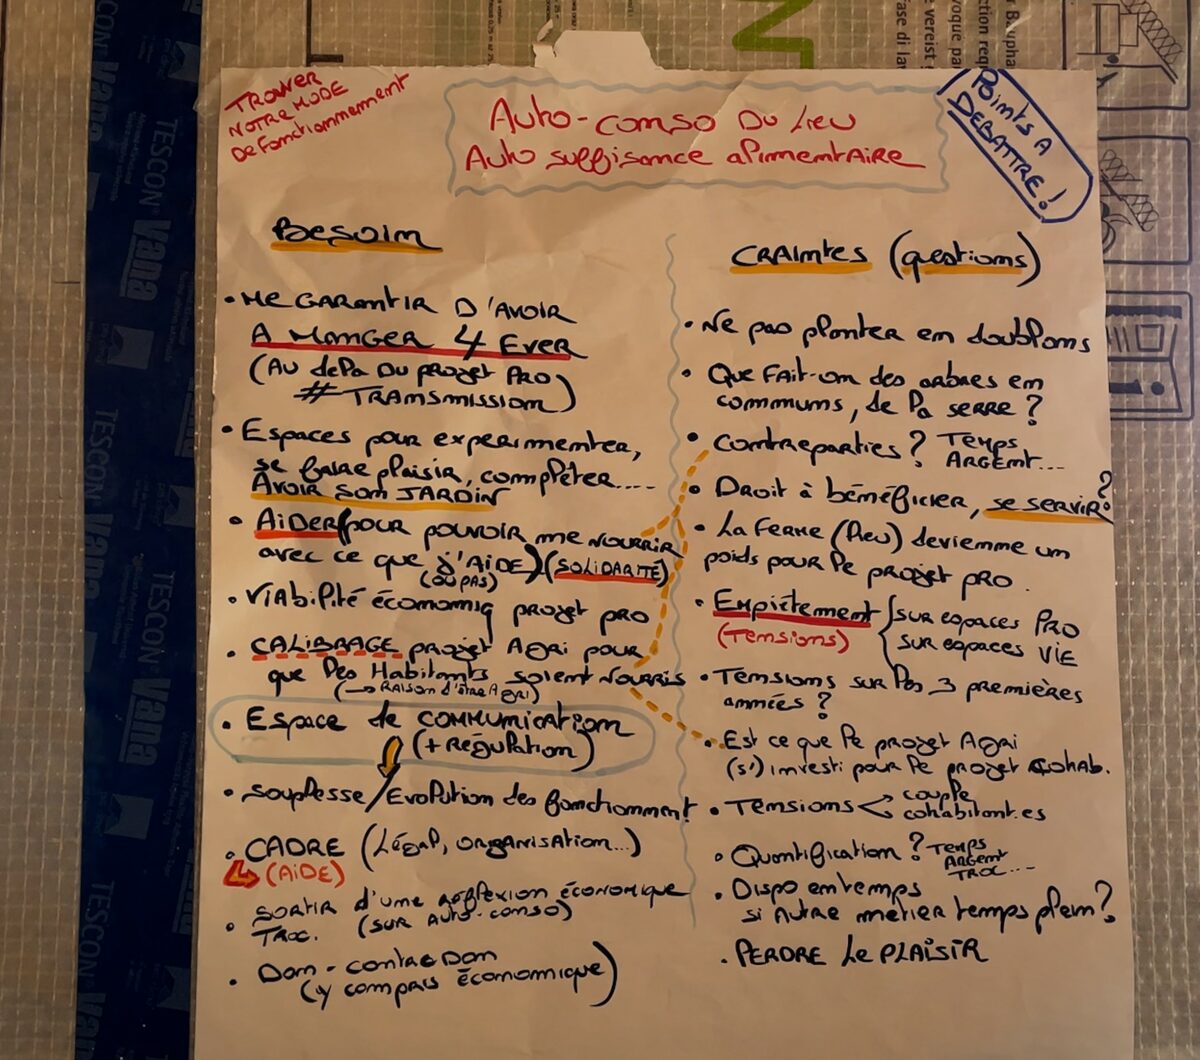 TROUVER
NOTRE MODE
De Fonctionnement
Auto-conso Du Lieu
Auto suffisance alimentaire
Points A
DEBATTRE !
Besoin
• Me GARANTIR D'AVOIR
A MANGER 4 EVER
(Au delà Du projet PRO
# TRANSMISSION)
• Espaces pour experimenter,
se faire plaisir, complèter....
AVOIR SON JARDIN
• AiDER pour pouvoir me NOURRIR
avec ce que j'AiDE) (SOLIDARITÉ)
(OU PAS)
• Viabilité économiq projet pro
• CALIBRAGE projet Agri pour
que les Habitants soient Nourris
(→ RAISON d'être Agri)
• Espace de COMMUNICATION
(+ Régulation)
• Souplesse / Evolution des fonctionnment
• CADRE (Légal, organisation...)
(AiDE)
• SORTIR d'une réflexion économique
TROC. (SUR AUTO-CONSO)
• Don - contre Don
(y compris économique)
CRAINTES (questions)
• Ne pas planter en doublons
• Que Fait-on des arbres en
communs, de la serre ?
• Contreparties ? TEMPS
ARGENT...
• Droit à bénéficier, se servir ?
• La Ferme (lieu) devienne un
poids pour le projet pro.
• Empiètement { sur espaces PRO
(Tensions) sur espaces VIE
• Tensions sur les 3 premières
années ?
• Est ce que le projet Agri
(s') investi pour le projet Cohab.
• Tensions < couple
cohabitant.es
• Quantification ? Temps
Argent
TROC...
• Dispo en temps
si Autre métier temps plein ?
• PERDRE Le PLAISIR
TESCON
Vana
TESCON
Vana
TESCON
Vana